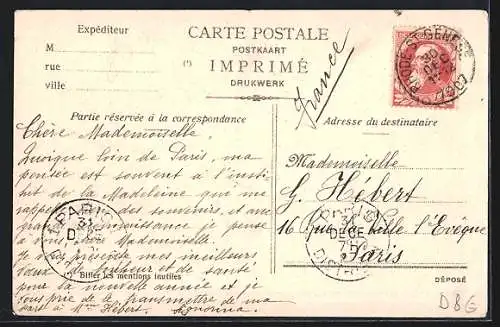 Expéditeur
M
rue
ville
CARTE POSTALE
POSTKAART
(*) IMPRIMÉ
DRUKWERK
France
RHODE-ST-GENÈSE
30
DEC
1907
Partie réservée à la correspondance
Adresse du destinataire
Chère Mademoiselle.
Quoique loin de Paris, ma
pensée est souvent à l'insti
tut de la Madeleine qui me
rappelle des souvenirs, et avec
reconnaissance je pense
à vous, chère Mademoiselle.
Je vous présente mes meilleurs
vœux de bonheur et de santé
pour la nouvelle année et je
vous prie de le transmettre de ma
part à Mme Hébert.
Mademoiselle
G. Hébert
16 Rue de la Ville l'Evêque
Paris
PARIS
31
DECE
(*) Biffer les mentions inutiles
DÉPOSÉ
D8G